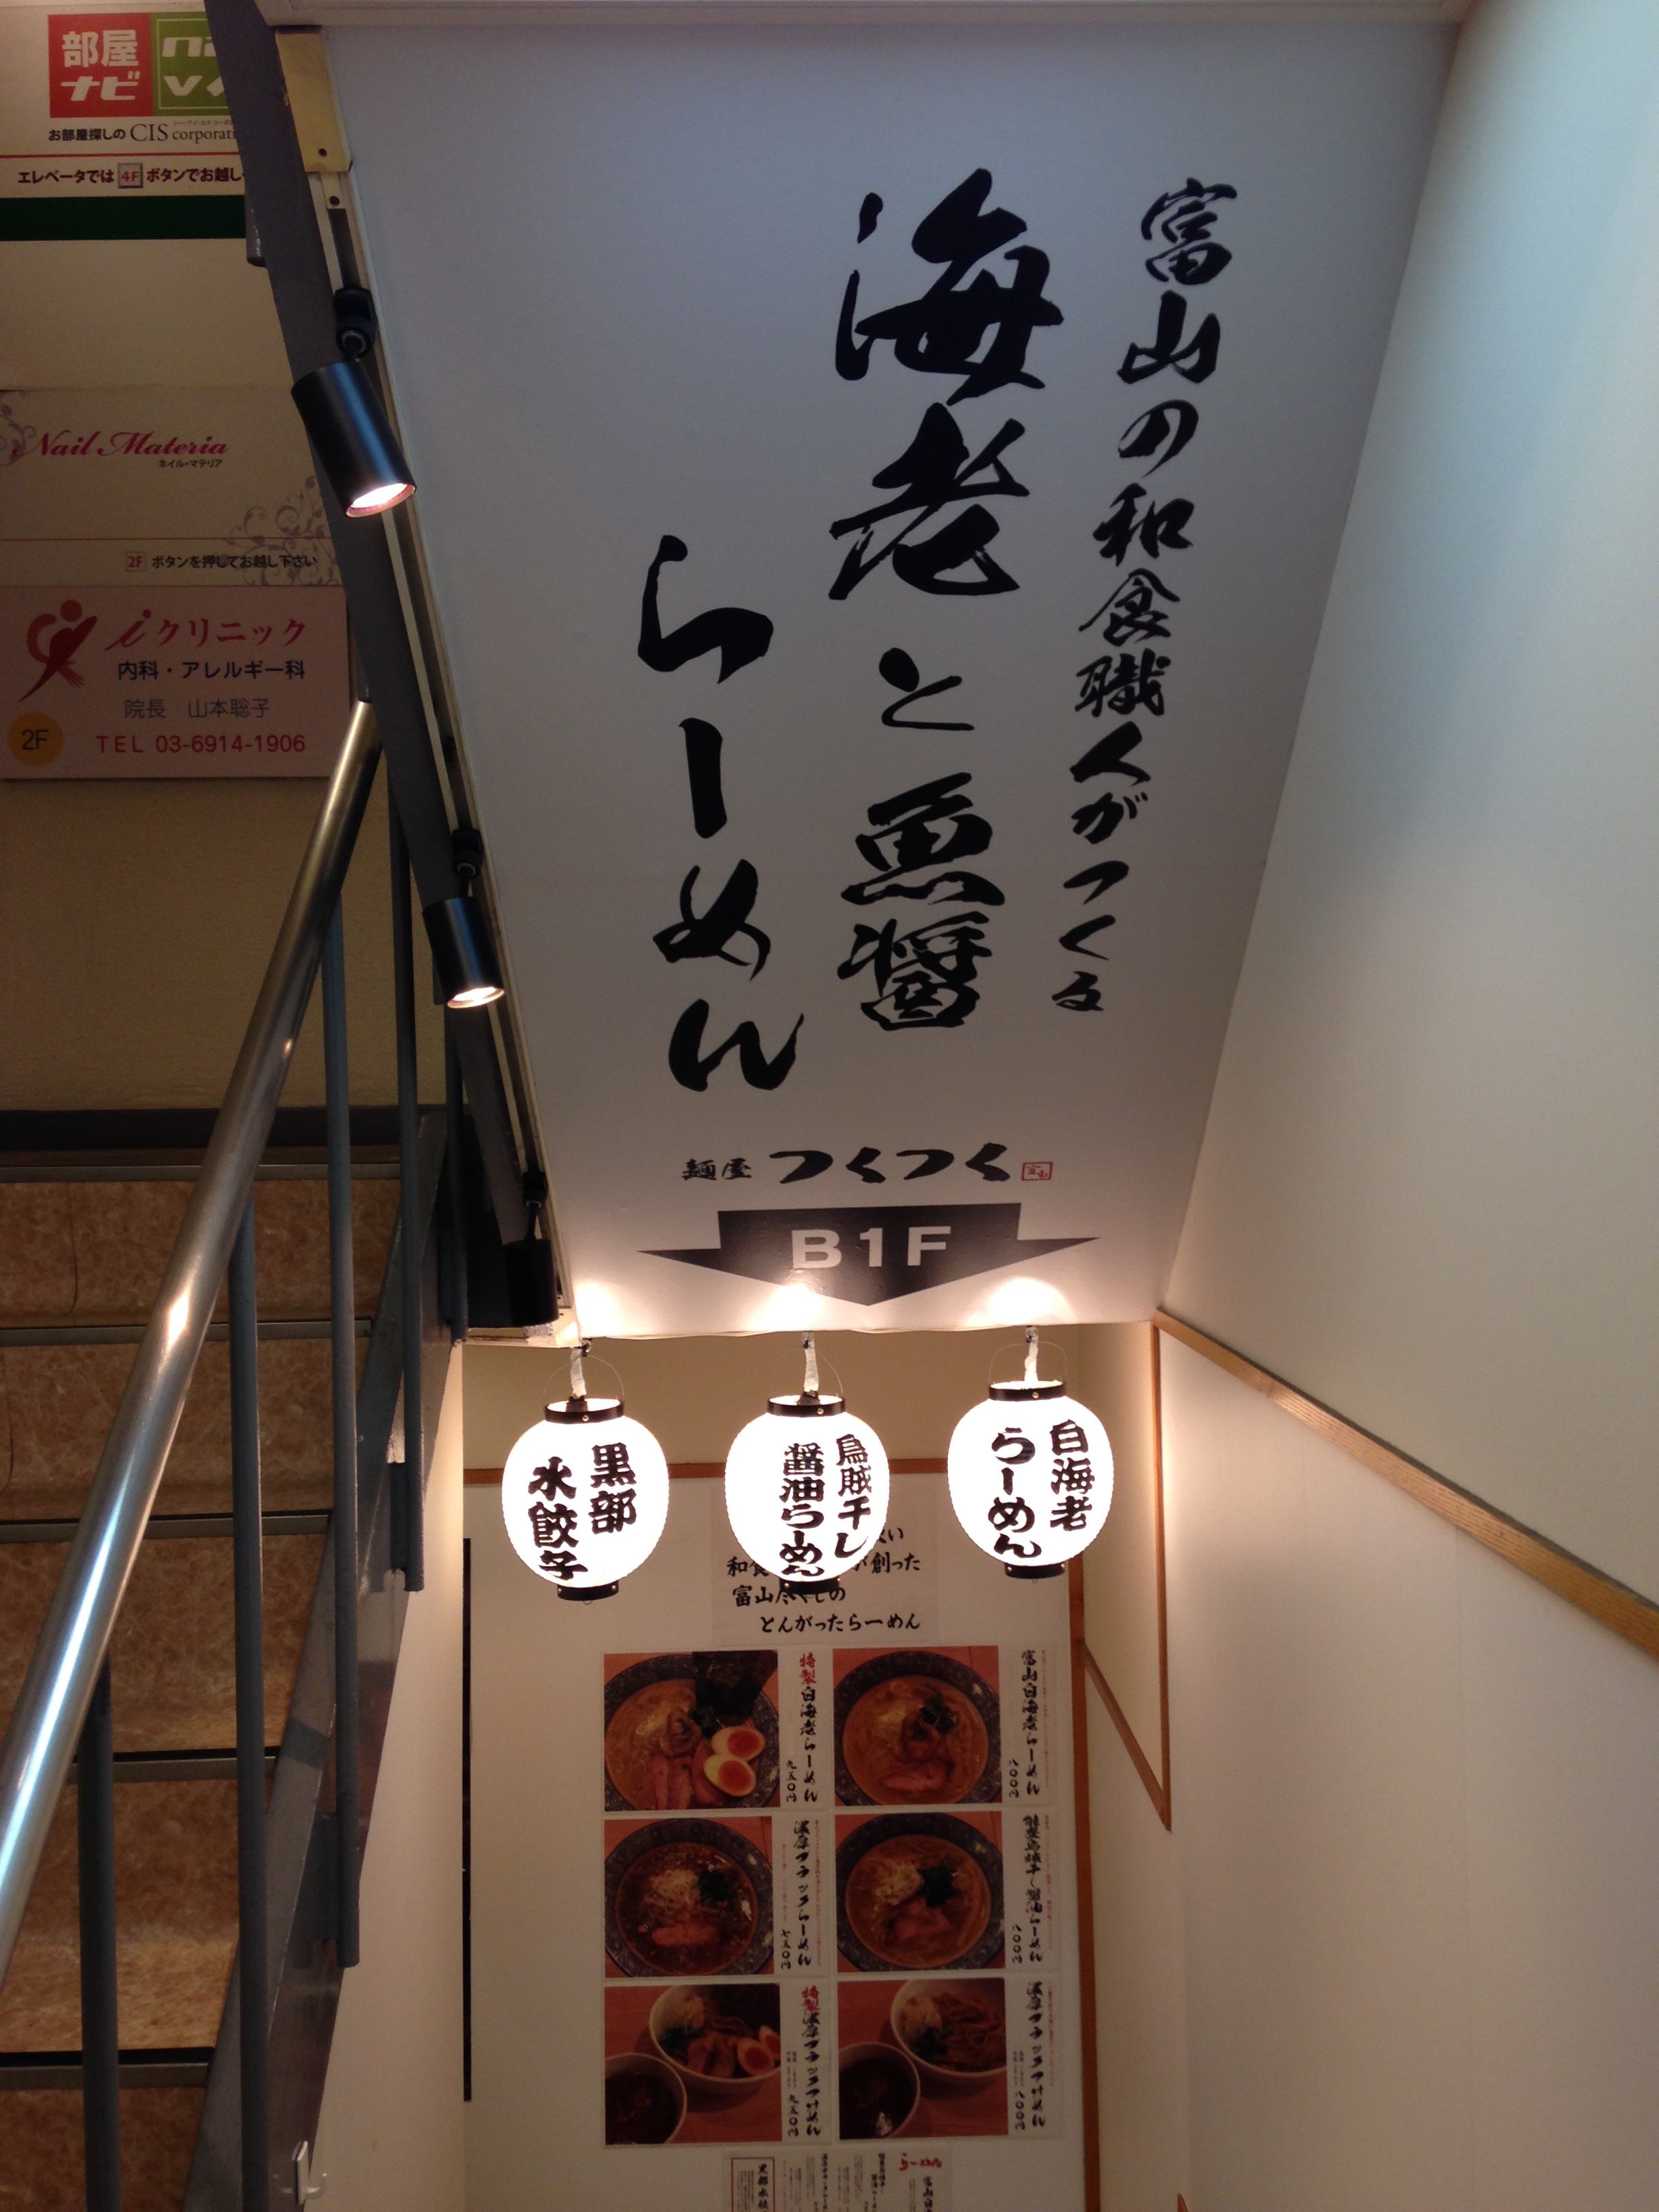 部屋
ナビ
お部屋探しの CIS
エレベータでは 4F ボタンでお越し
Nail Materia
ネイル・マテリア
2F ボタンを押してお越し下さい
iクリニック
内科・アレルギー科
院長 山本聡子
2F
TEL 03-6914-1906
富山の和食職人がつくる
海老と魚醤
らーめん
麺屋 つくつく 富山
B1F
白海老
らーめん
烏賊干し
醤油らーめん
黒部
水餃子
が創った
富山尽くしの
とんがったらーめん
富山白海老らーめん
八〇〇円
特製白海老らーめん
九五〇円
醤油らーめん
八〇〇円
濃厚ブラックらーめん
七五〇円
濃厚ブラックつけめん
八〇〇円
特製濃厚ブラックつけめん
九五〇円